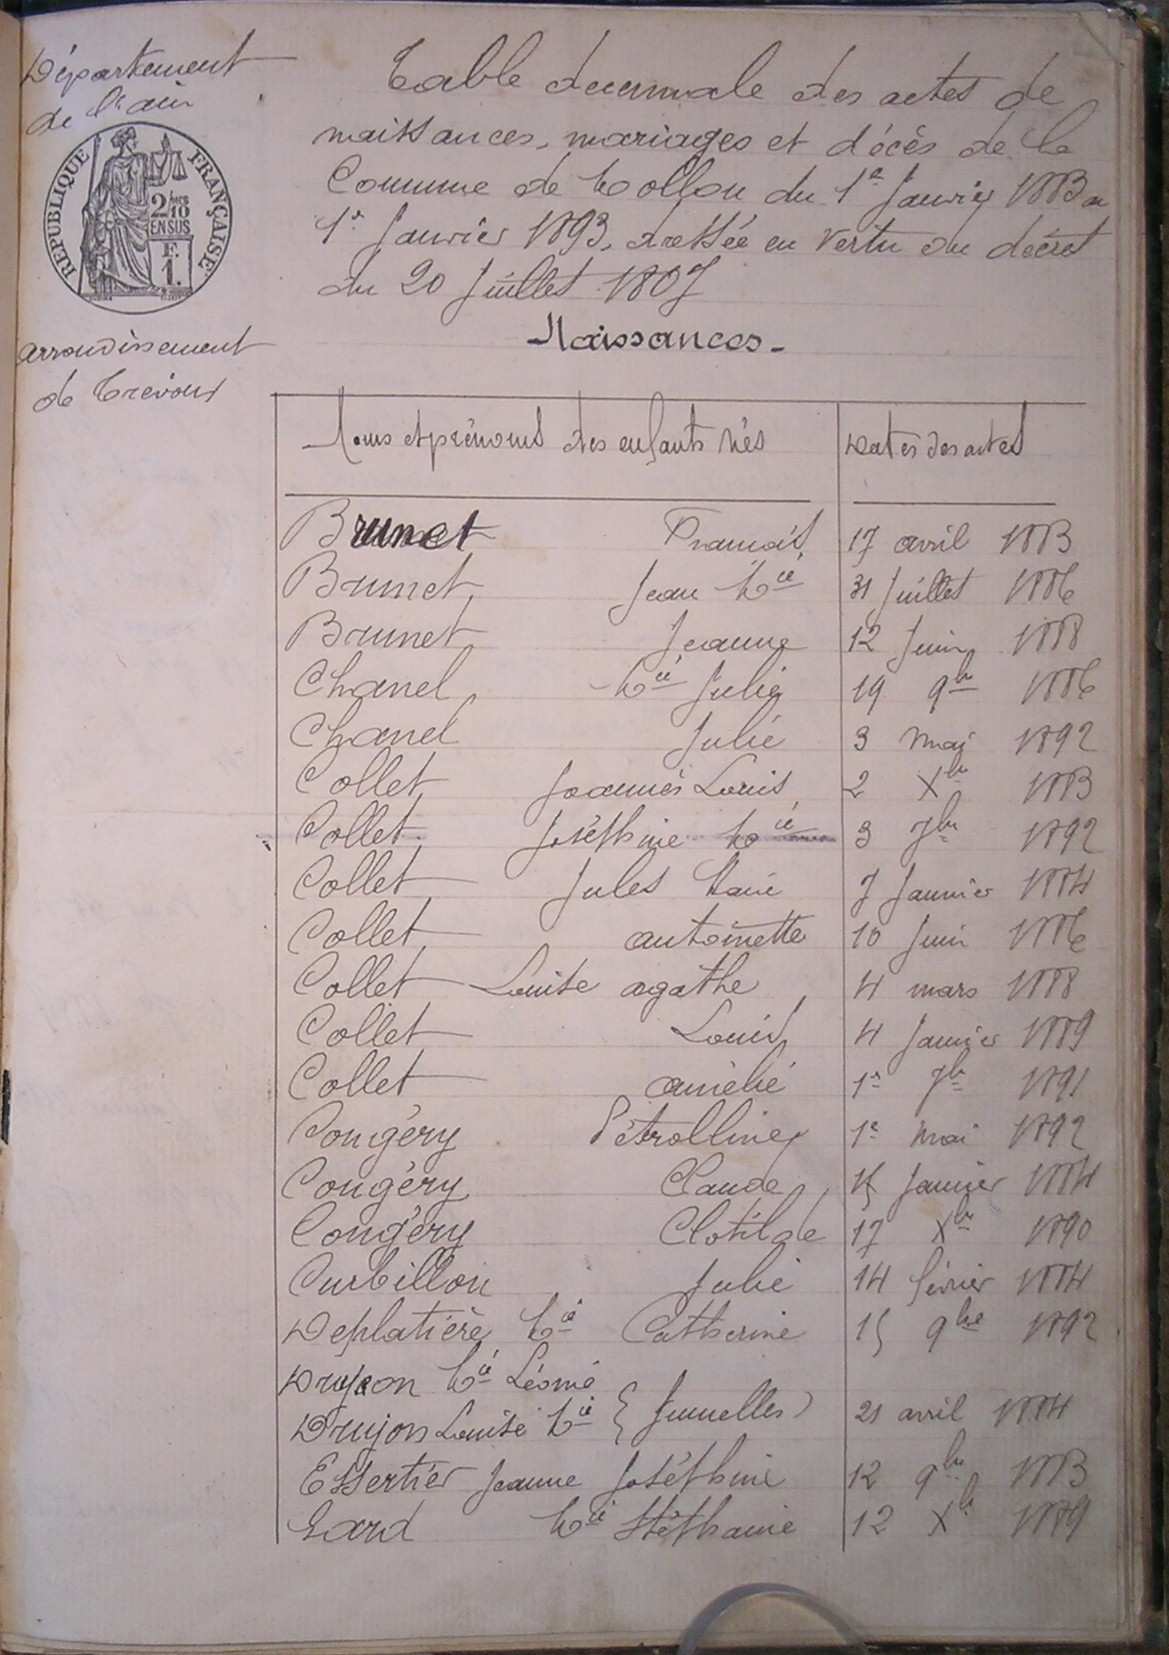 Département
de l'ain
RÉPUBLIQUE FRANÇAISE
2/10
EN SUS
F.
1.
arrondissement
de Trévoux
Table décennale des actes de
naissances, mariages et décès de la
Commune de du 1er Janvier 1883 au
1er Janvier 1893, dressée en vertu du décret
du 20 Juillet 1807
Naissances.
Noms et prénoms des enfants nés Dates des actes
Brunet François 17 avril 1883
Brunet Jean Mie 31 Juillet 1886
Brunet Jeanne 12 Juin 1888
Chanel Mie Julie 19 9bre 1886
Chanel Julie 3 mai 1892
Collet Joannès Louis 2 Xbre 1883
Collet Joséphine Mie 3 7bre 1892
Collet Jules Marie 7 Janvier 1884
Collet antoinette 10 Juin 1886
Collet Louise agathe 4 mars 1888
Collet Louis 4 Janvier 1889
Collet amélie 1er 7bre 1891
Pétrolline 1er mai 1892
Claude 15 Janvier 1884
Clotilde 17 Xbre 1890
Curbillon Julie 14 février 1884
Deplatière Mie Catherine 15 9bre 1892
Drujon Mie Léonie
Drujon Louise Mie { Jumelles) 21 avril 1884
Essertier Jeanne Joséphine 12 9bre 1883
Gard Mie Stéphanie 12 Xbre 1889